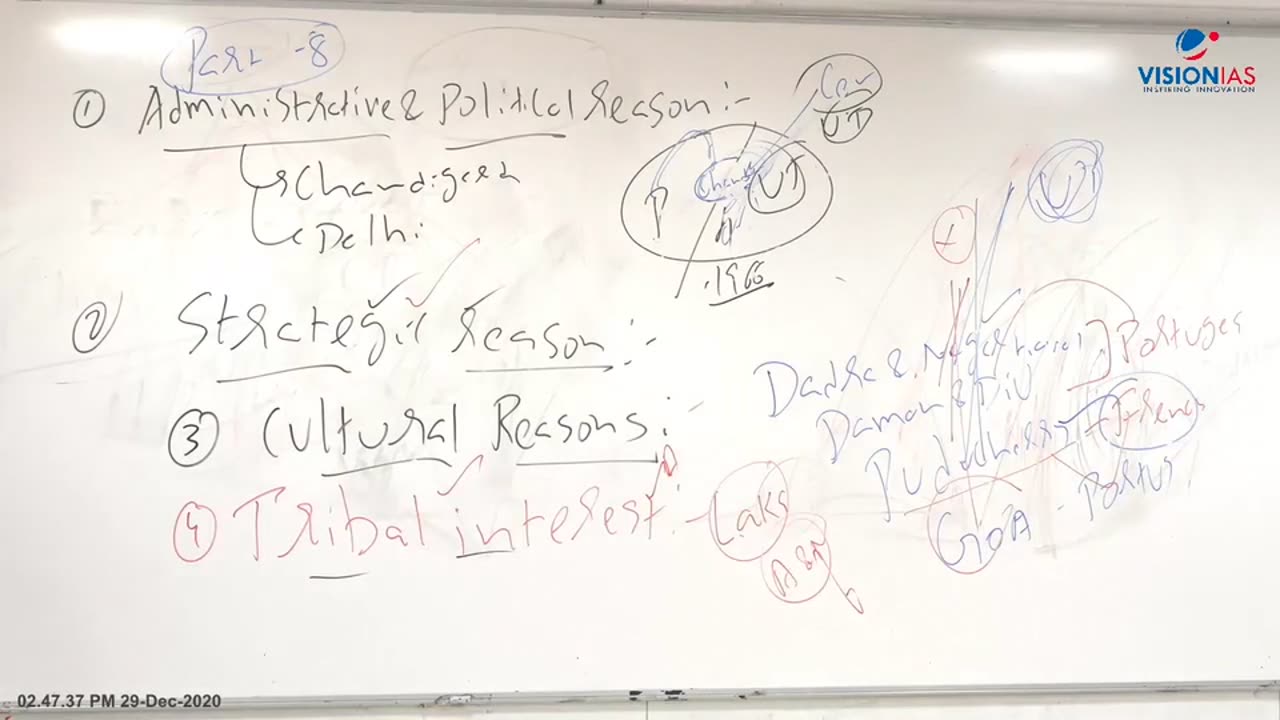 Part -8
① Administrative & Political Reason :-
Chandigarh
Delhi
Cen
UT
P
Chandi
UT
H
1966
② Strategic Reason :-
③ Cultural Reasons :-
④ Tribal interest :- Laks
A & N
UT
Dadra & Nagar Haveli
Daman & Diu
Portuges
Puducherry
French
GOA - Portus
VISIONIAS
INSPIRING INNOVATION
02.47.37 PM 29-Dec-2020